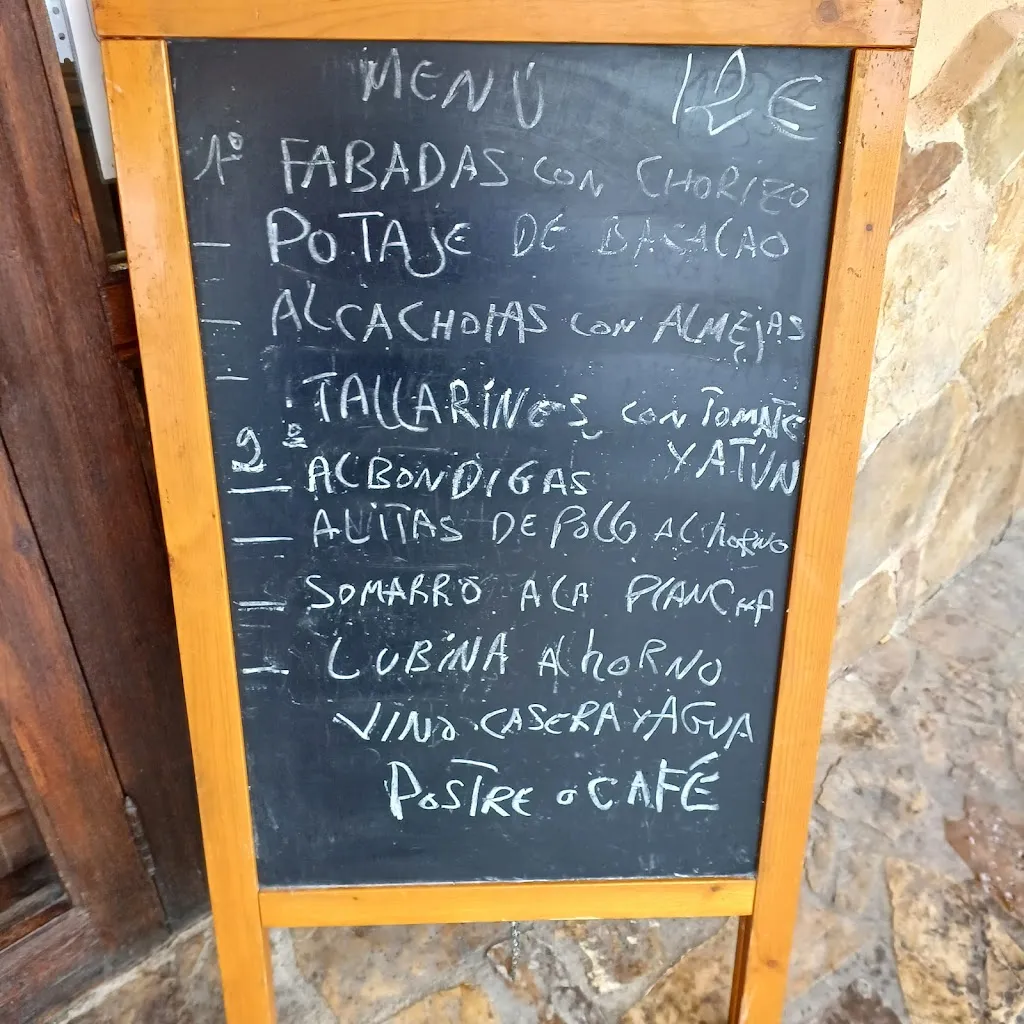 MENÚ 12€
1º FABADAS CON CHORIZO
— POTAJE DE BACALAO
— ALCACHOFAS CON ALMEJAS
— TALLARINES CON TOMATE
Y ATÚN
2º ALBONDIGAS
— ALITAS DE POLLO AL hORNO
— SOMARRO A LA PLANCHA
— LUBINA Al hORNO
VINO CASERA Y AGUA
POSTRE O CAFÉ